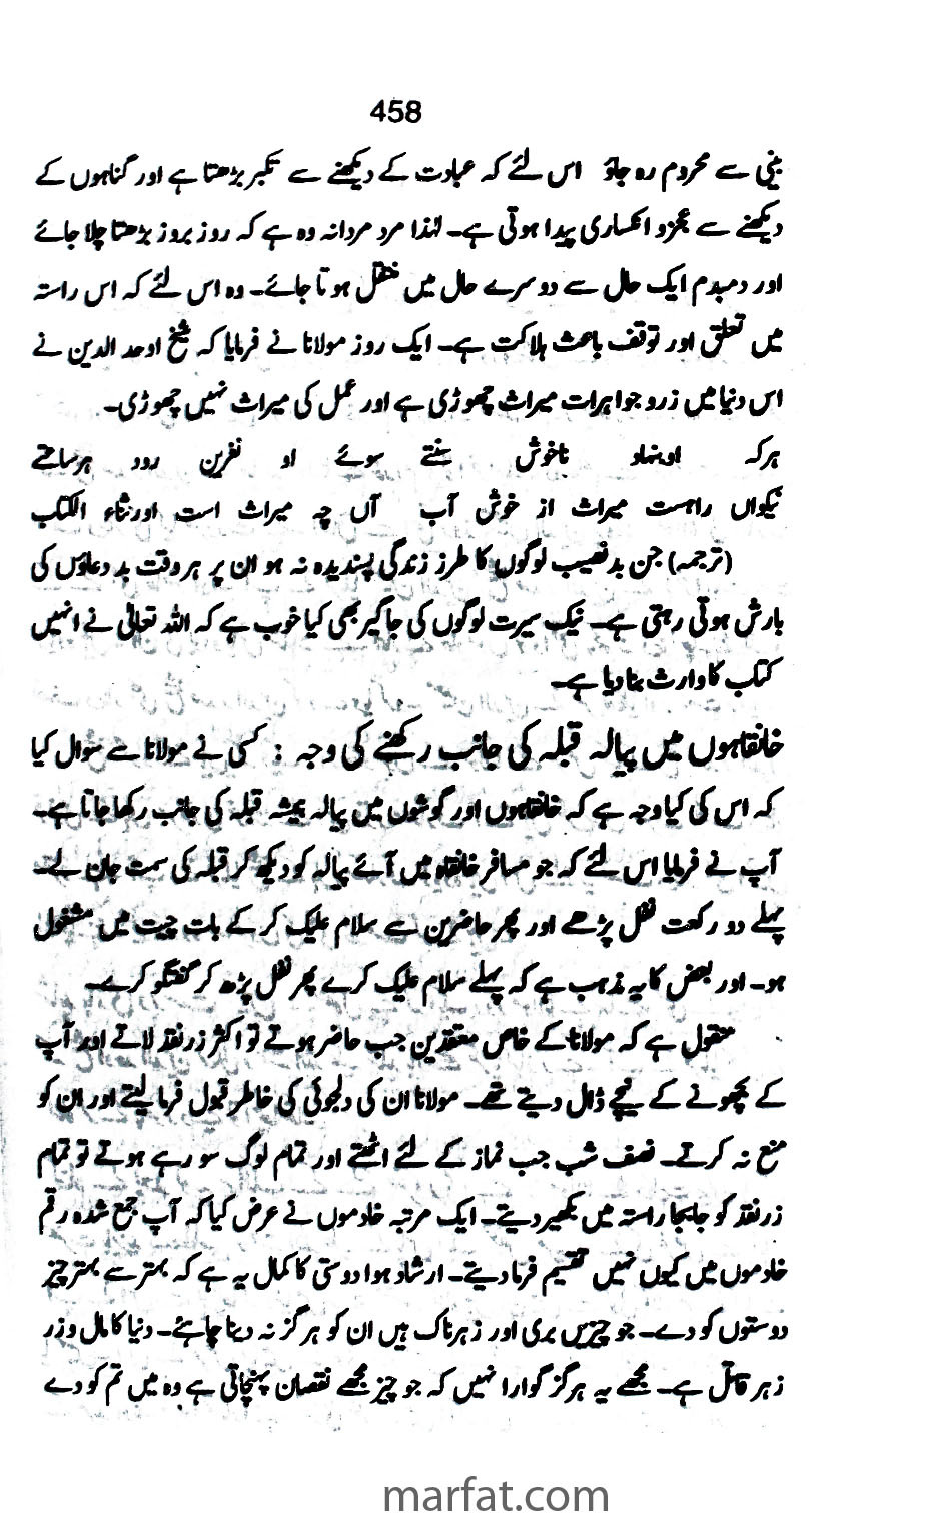 458
بینی سے محروم رہ جاؤ اس لئے کہ عبادت کے دیکھنے سے تکبر بڑھتا ہے اور گناہوں کے
دیکھنے سے عجز و انکساری پیدا ہوتی ہے۔ لہٰذا مرد مردانہ وہ ہے کہ روز بروز بڑھتا چلا جائے
اور دمبدم ایک حال سے دوسرے حال میں منتقل ہوتا جائے۔ وہ اس لئے کہ اس راستہ
میں تعلق اور توقف باعث ہلاکت ہے۔ ایک روز مولانا نے فرمایا کہ شیخ اوحد الدین نے
اس دنیا میں زر و جواہرات میراث چھوڑی ہے اور عمل کی میراث نہیں چھوڑی۔
ہرکہ او بنہاد ناخوش سنتے سوئے او نفرین رود ہر ساعتے
نیکواں راہست میراث از خوش آب آں چہ میراث است اورثناء الکتب
(ترجمہ) جن بدنصیب لوگوں کا طرز زندگی پسندیدہ نہ ہو ان پر ہر وقت بددعاؤں کی
بارش ہوتی رہتی ہے۔ نیک سیرت لوگوں کی جاگیر بھی کیا خوب ہے کہ اللہ تعالیٰ نے انہیں
کتاب کا وارث بنا دیا ہے۔
خانقاہوں میں پیالہ قبلہ کی جانب رکھنے کی وجہ : کسی نے مولانا سے سوال کیا
کہ اس کی کیا وجہ ہے کہ خانقاہوں اور گوشوں میں پیالہ ہمیشہ قبلہ کی جانب رکھا جاتا ہے۔
آپ نے فرمایا اس لئے کہ جو مسافر خانقاہ میں آئے پیالہ کو دیکھ کر قبلہ کی سمت جان لے۔
پہلے دو رکعت نفل پڑھے اور پھر حاضرین سے سلام علیک کر کے بات چیت میں مشغول
ہو۔ اور بعض کا یہ مذہب ہے کہ پہلے سلام علیک کرے پھر نفل پڑھ کر گفتگو کرے۔
منقول ہے کہ مولانا کے خاص معتقدین جب حاضر ہوتے تو اکثر زر نقد لاتے اور آپ
کے بچھونے کے نیچے ڈال دیتے تھے۔ مولانا ان کی دلجوئی کی خاطر قبول فرما لیتے اور ان کو
منع نہ کرتے۔ نصف شب جب نماز کے لئے اٹھتے اور تمام لوگ سو رہے ہوتے تو تمام
زر نقد کو جابجا راستہ میں بکھیر دیتے۔ ایک مرتبہ خادموں نے عرض کیا کہ آپ جمع شدہ رقم
خادموں میں کیوں نہیں تقسیم فرما دیتے۔ ارشاد ہوا دوستی کا کمال یہ ہے کہ بہتر سے بہتر چیز
دوستوں کو دے۔ جو چیزیں بری اور زہرناک ہیں ان کو ہرگز نہ دینا چاہئے۔ دنیا کا مال و زر
زہر قاتل ہے۔ مجھے یہ ہرگز گوارا نہیں کہ جو چیز مجھے نقصان پہنچاتی ہے وہ میں تم کو دے
marfat.com